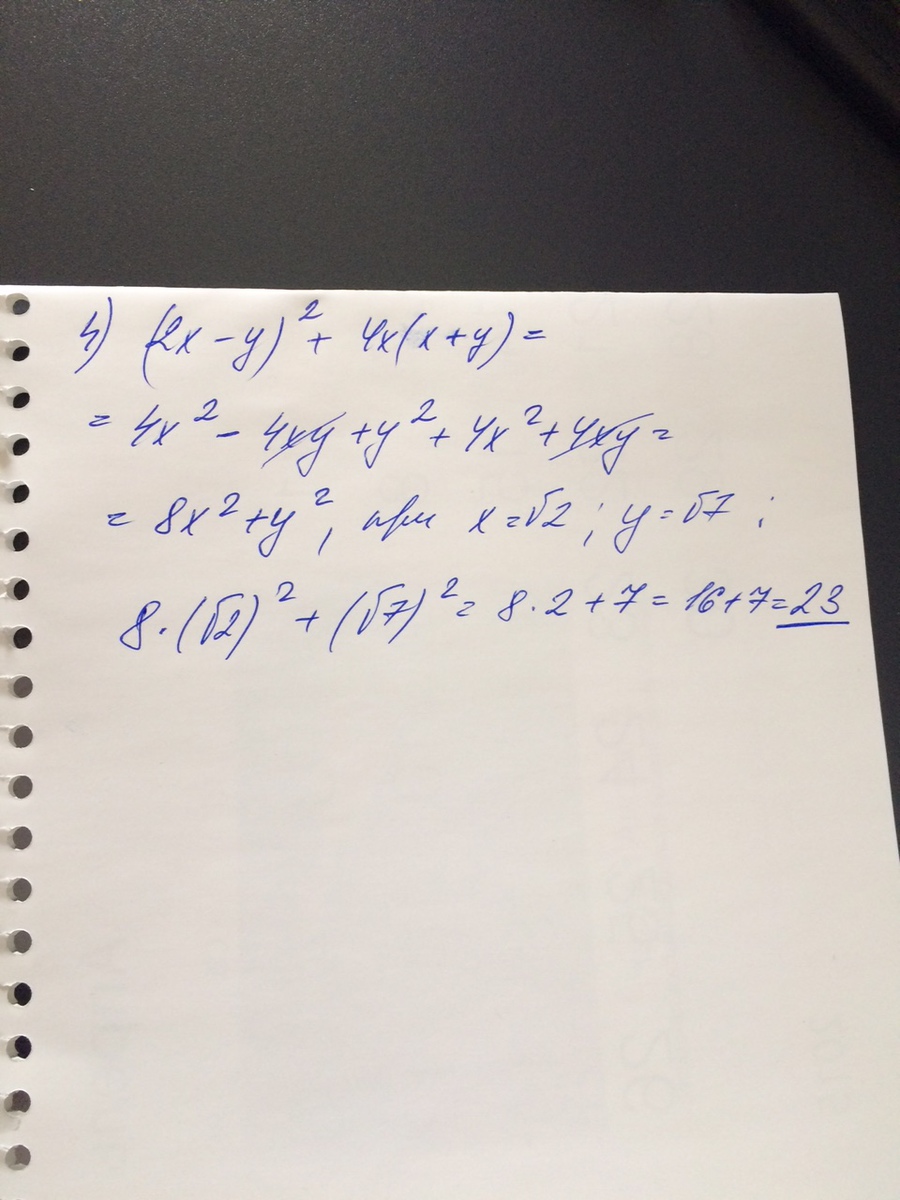 4) (2x-y)² + 4x(x+y)=
= 4x² - 4xy + y² + 4x² + 4xy =
= 8x² + y², при x=√2 ; y=√7 ;
8·(√2)² + (√7)² = 8·2+7 = 16+7=23